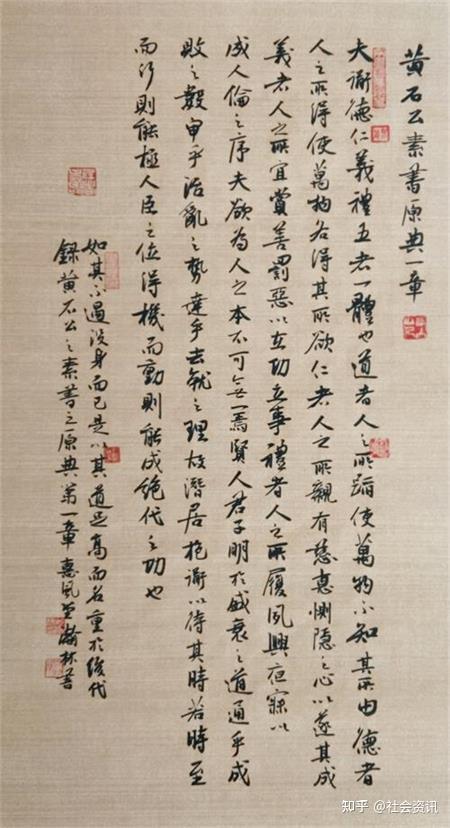 黄石公素書原典一章
夫衜德仁義禮五者一體也道者人之所蹈使萬物不知其所由德者
人之所得使萬物各得其所欲仁者人之所親有慈惠惻隐之心以遂其成
義者人之所宜賞善罰惡以立功立事禮者人之所履夙興夜寐以
成人倫之序夫欲為人之本不可无一焉賢人君子明於盛衰之道通乎成
敗之數审乎治亂之勢達乎去就之理故潛居抱衜以待其時若時至
而行則能極人臣之位得機而動則能成絶代之功也
如其不遇没身而已是以其道足高而名重於後代
錄黄石公之素書之原典第一章惠風堂瀚林書
知乎 @社会资讯